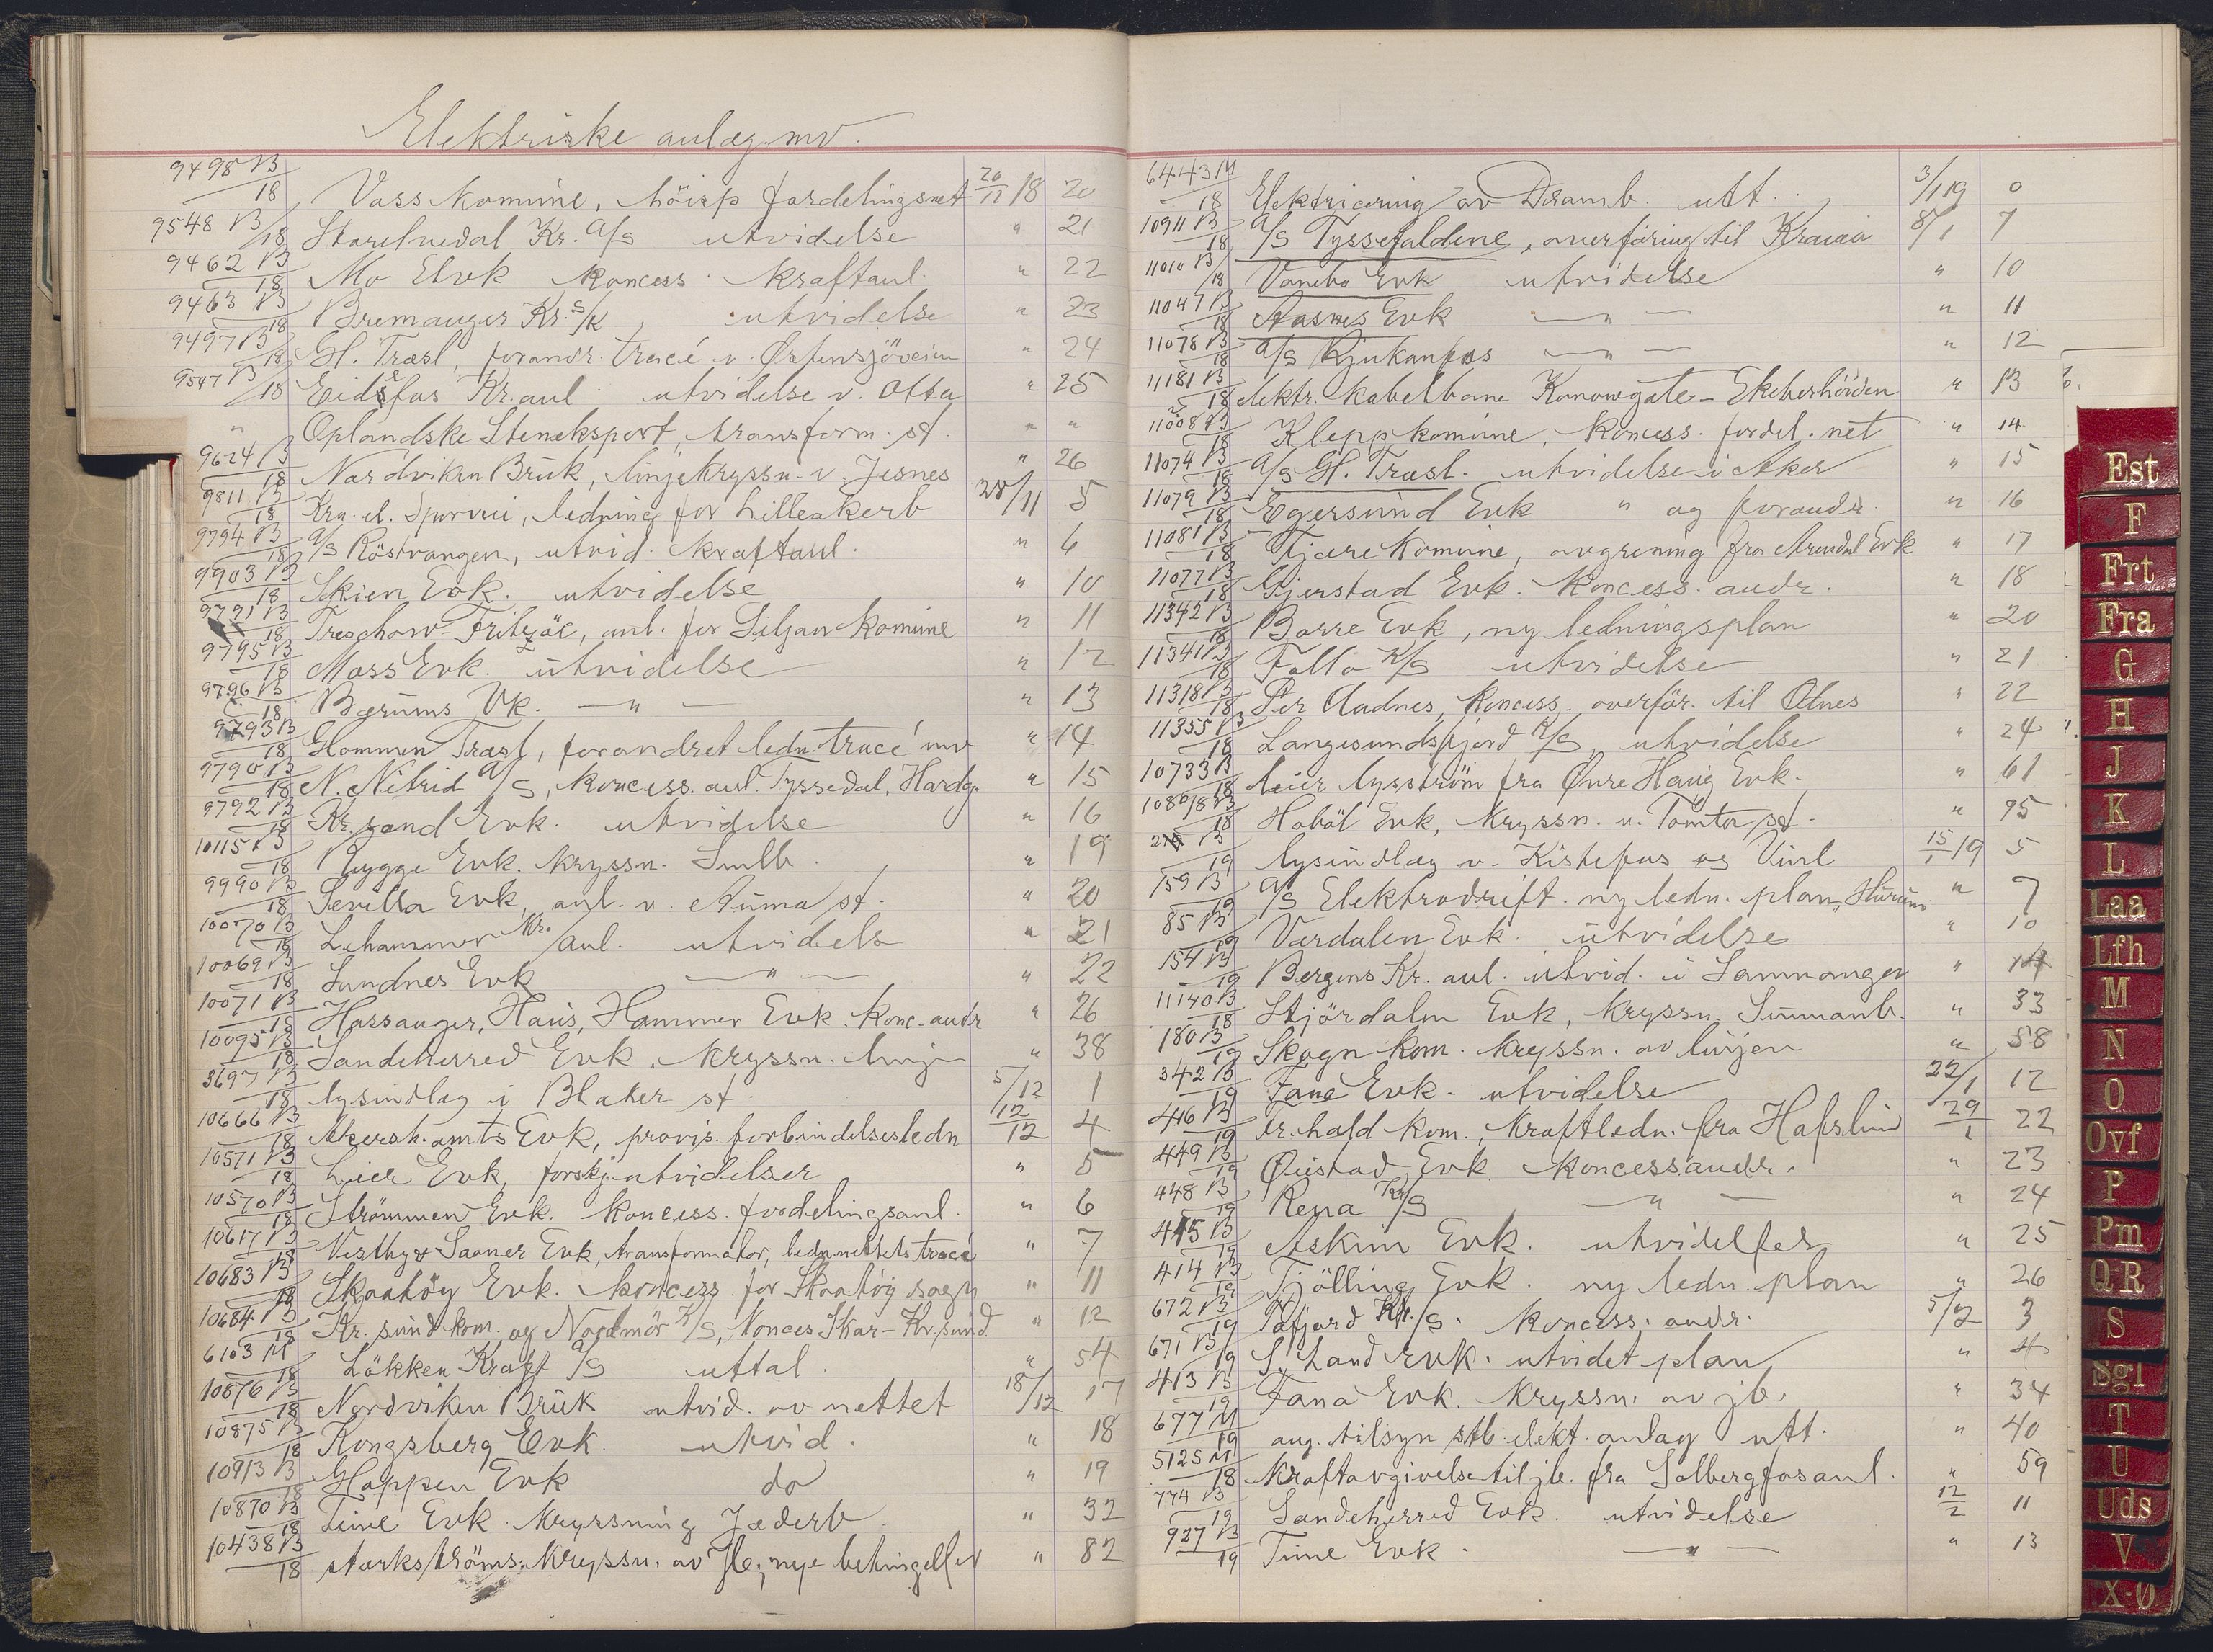 Elektriske anlæg mv.
9498 B/18 Voss komune, höisp fordelingsnet 20/11 18 20
9548 B/18 Kr. A/S utvidelse " 21
9462 B/18 Mo Elvk koncess. kraftanl. " 22
9463 B/18 Bremanger Kr. S/K, utvidelse " 23
9497 B/18 Gl. Træsl, forandr. tracé v. Østensjöveien " 24
9547 B/18 Eidsfos Kr. anl. utvidelse v. Otta " 25
" Oplandske Steneksport, transform. st. " "
9624 B/18 Nordviken Bruk, linjekryssn. v. Jesnes " 26
9811 B/18 Kra. el. Sporvei, ledning for Lilleakerb 28/11 5
9794 B/18 A/S Röstvangen, utvid. kraftanl. " 6
9903 B/18 Skien Evk. utvidelse " 10
9791 B/18 Treschow-Fritzöe, anl. for Siljan komune " 11
9795 B/18 Moss Evk. utvidelse " 12
9796 B/18 Bærums Vk. — " — " 13
9793 B/18 Glommen Træsl, forandret ledn. tracé mv " 14
9790 B/18 N. Nitrid A/S, koncess. anl. Tyssedal, Hardg. " 15
9792 B/18 Kr.sand Evk. utvidelse " 16
10115 B/18 Rygge Evk. kryssn. Smlb. " 19
9990 B/18 Sevilla Evk, anl. v. Auma st. " 20
10070 B/18 L.hammer Kr. anl. utvidels " 21
10069 B/18 Sandnes Evk — " — " 22
10071 B/18 Hossanger, Haus, Hammer Evk. konc. andr " 26
10095 B/18 Sandeherred Evk. kryssn. linje " 38
3697 B/18 lysindlæg i Blaker st. 5/12 1
10666 B/18 Akersh. amts Evk, provis. forbindelsesledn 12/12 4
10571 B/18 Lier Evk, forskj. utvidelser " 5
10570 B/18 Strömmen Evk. koncess. fordelingsanl. " 6
10617 B/18 Vestby & Saaner Evk, transformator, ledn.nettets tracé " 7
10683 B/18 Skaatöy Evk. koncess. for Skaatöy sogn " 11
10684 B/18 Kr.sund kom. og Nordmör K/S, konces Skar - Kr.sund " 12
6103 M/18 Lökken Kraft A/S uttal. " 54
10876 B/18 Nordviken Bruk utvid. av nettet 18/12 17
10875 B/18 Kongsberg Evk. utvid. " 18
10913 B/18 Hoppen Evk do " 19
10870 B/18 Time Evk. kryssning Jæderb. " 32
10438 B/18 stærkströms. kryssn. av Jb., nye betingelser " 82
6443 M/18 Elektricering av Dramb. utt. 3/1 19 0
10911 B/18 A/S Tyssefaldene, overföring til 8/1 7
11010 B/18 Evk utvidelse " 10
11047 B/18 Aasnes Evk — " — " 11
11078 B/18 A/S Rjukanfos — " — " 12
11181 B/18 elektr. kabelbane Konowsgate - Ekeberhöiden " 13
11008 B/18 Klepp komune, koncess. fordel. net " 14
11074 B/18 A/S Gl. Træsl. utvidelse i Aker " 15
11079 B/18 Egersund Evk " og forandr. " 16
11081 B/18 Tjære komune, avgrening fra Arendal Evk " 17
11077 B/18 Gjerstad Evk. koncess. andr. " 18
11342 B/18 Borre Evk, ny ledningsplan " 20
11341 B/18 Follo K/S utvidelse " 21
11318 B/18 Per Aadnes, koncess. overför. til Odnes " 22
11355 B/18 Langesundsfjord K/S, utvidelse " 24
10733 B/18 leier lysström fra Övre Haug Evk. " 61
10808 B/18 Hoböl Evk, kryssn. v. Tomter st. " 95
B/19 lysindlæg v. Kistefos og Vinl 15/1 19 5
159 B/19 A/S Elektrodrift. ny ledn. plan, Hurum " 7
85 B/19 Værdalen Evk. utvidelse " 10
154 B/19 Bergens Kr. anl. utvid. i Samnanger " 14
11140 B/18 Stjördalen Evk, kryssn. " 33
180 B/19 Skogn kom. kryssn. av linjen " 58
342 B/19 Fane Evk. utvidelse 22/1 12
446 B/19 Fr.hald kom., kraftledn. fra Hafslund 29/1 22
449 B/19 Öiestad Evk. koncess. andr. " 23
448 B/19 Rena Kr/S — " — " 24
415 B/19 Askim Evk. utvidelser " 25
414 B/19 Tjölling Evk. ny ledn. plan " 26
672 B/19 Tafjord Kr./S. koncess. andr. 5/2 3
671 B/19 S. Land Evk. utvidet plan " 4
413 B/19 Fana Evk. kryssn. av jb. " 34
677 M/19 ang. tilsyn stb. elekt. anlæg utt. " 40
5125 M/18 kraftavgivelse til jb. fra Solbergfosanl. " 59
774 B/19 Sandeherred Evk. utvidelse 12/2 11
927 B/19 Time Evk. — " — " 13
Est
F
Frt
Fra
G
H
J
K
L
Laa
Lfh
M
N
O
Ovf
P
Pm
Q-R
S
Sgl
T
U
Uds
V
X-Ø